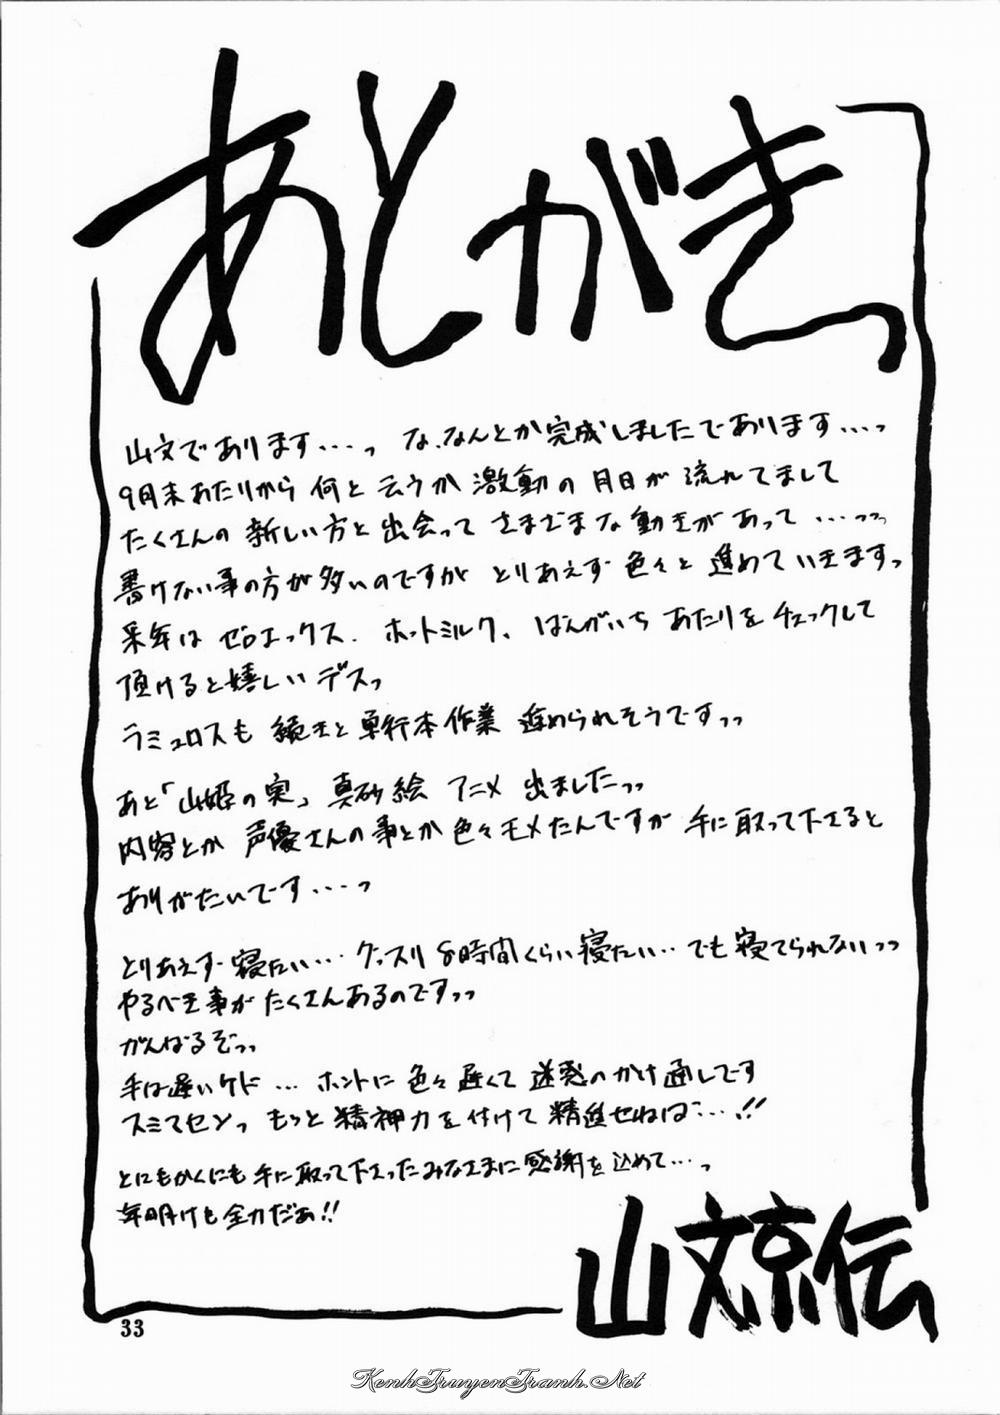 あとがきっ
山文であります・・・っ な、なんとか完成しましたであります・・・っ
9月末あたりから 何と云うか 激動の 月日が 流れてまして
たくさんの 新しい方と 出会って さまざまな 動きが あって ・・・っっ
書けない事の方が多いのですが とりあえず 色々と 進めていきますっ
来年は ゼロエックス、ホットミルク、ばんがいち あたりを チェックして
頂けると嬉しい デスっ
ラミュロスも 続きと 単行本作業 進められそうですっっ
あと「山姫の実」真砂絵 アニメ 出ましたっっ
内容とか 声優さんの事とか 色々モメたんですが 手に取って下さると
ありがたいです・・・っ
とりあえず 寝たい・・・ グッスリ 8時間くらい 寝たい・・ でも 寝てられないっっ
やるべき事が たくさんあるのですっっ
がんばるぞっっ
手は遅いケド ・・・ ホントに 色々 遅くて 迷惑のかけ通しです
スミマセンっ もっと 精神力を付けて 精進せねば・・・!!
とにもかくにも 手に取って下さったみなさまに 感謝を 込めて・・・っ
年明けも 全力だぁ!!
山文京伝
33
KenhTruyenTranh.Net